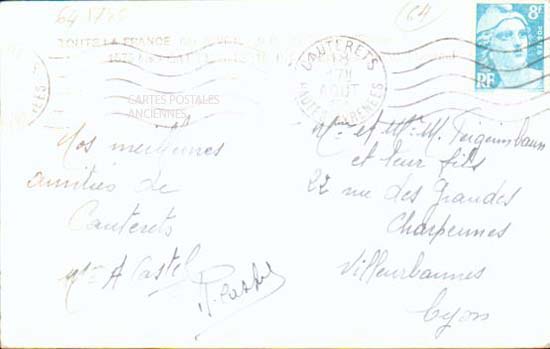 64 1745
64
TOUTE LA FRANCE
8F
POSTES
RF
CAUTERETS
18
AOUT
HAUTES PYRENEES
CARTES POSTALES
ANCIENNES
Nos meilleures
amitiés de
Cauterets
Mme A Castel
Castel
Mme et Mr M.
et leur fils
22 rue des Grandes
Charpennes
Villeurbannes
Lyon